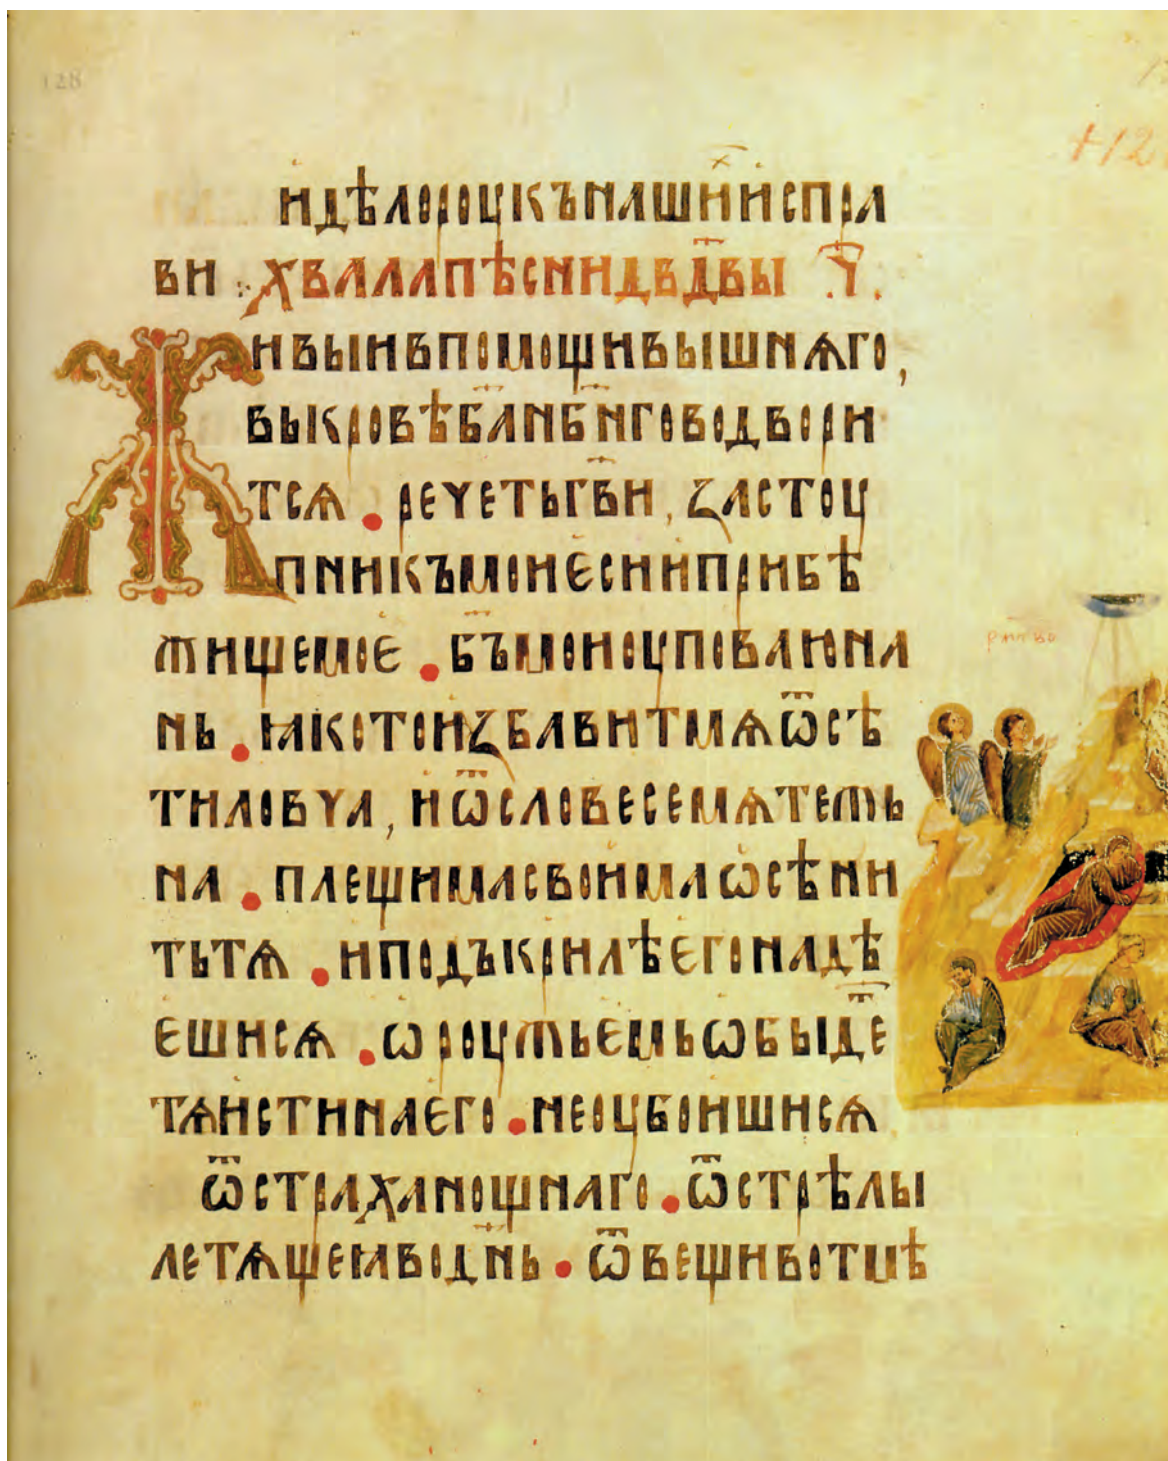 128
+12
и дѣлороукънаши́хъиспра
ви : хвалапѣснид҃вдвы ч҃.
Живыивпомощивышнѧго,
выкровѣб҃ан҃бнговодвори
тсѧ . речетьг҃ви, застоу
пникъмоиѥсииприбѣ
жищемоѥ . б҃ъмоиоуповаюна
нь . ꙗкотоизбавитмѧѿсѣ
тиловча, иѿсловесемѧтежь
на . плещимасвоимаѡсѣни
тьтѧ . иподъкрилѣегонадѣ
ешисѧ . ѡроужьемьѡбыд҃е
тѧистинаего . неоубоишисѧ
ѿстраханощнаго . ѿстрѣлы
летѧщеꙗвод҃нь . ѿвещивотмѣ
рж҃тво